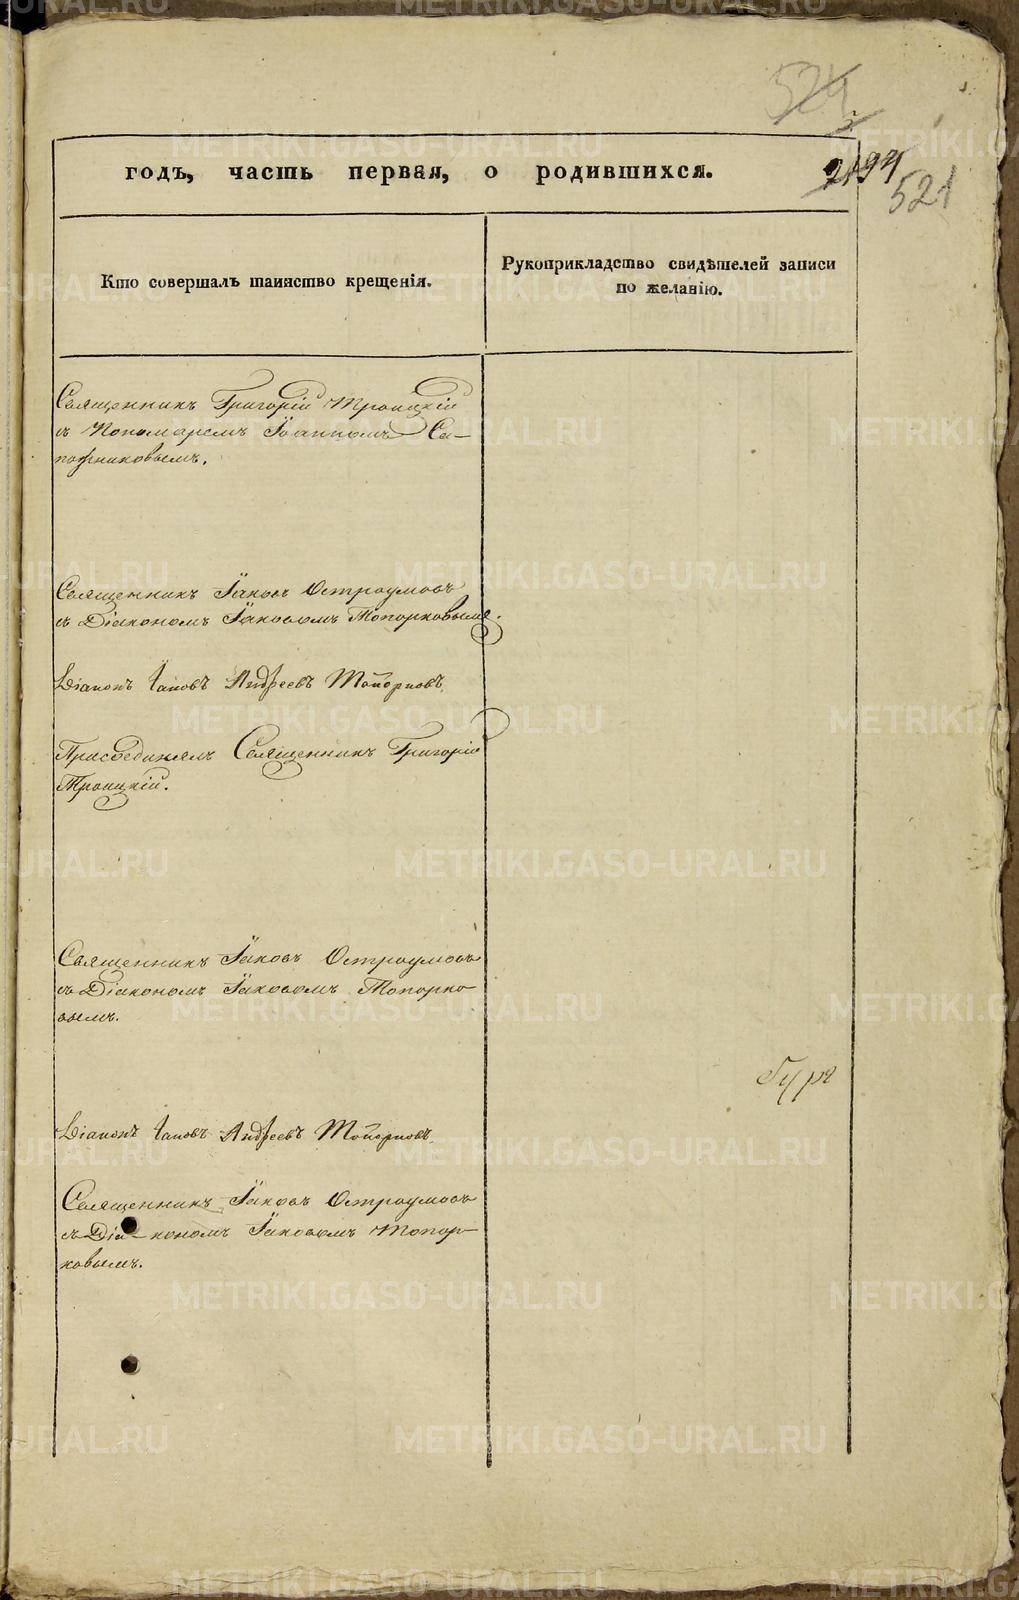 524
годъ, часть первая, о родившихся.
521
Кто совершалъ таинство крещенія.
Рукоприкладство свидѣтелей записи
по желанію.
Священникъ Григорій Троицкій
съ Пономаремъ Іоанномъ Са-
пожниковымъ.
Священникъ Іаковъ Остроумовъ
съ Діакономъ Іаковомъ Топорковымъ.
Діаконъ Іаковъ Андреевъ Топорковъ
Присоединялъ Священникъ Григорій
Троицкій.
Священникъ Іаковъ Остроумовъ
съ Діакономъ Іаковомъ Топорко-
вымъ.
Діаконъ Іаковъ Андреевъ Топорковъ
Священникъ Іаковъ Остроумовъ
съ Діа-кономъ Іаковомъ Топор-
ковымъ.
METRIKI.GASO-URAL.RU